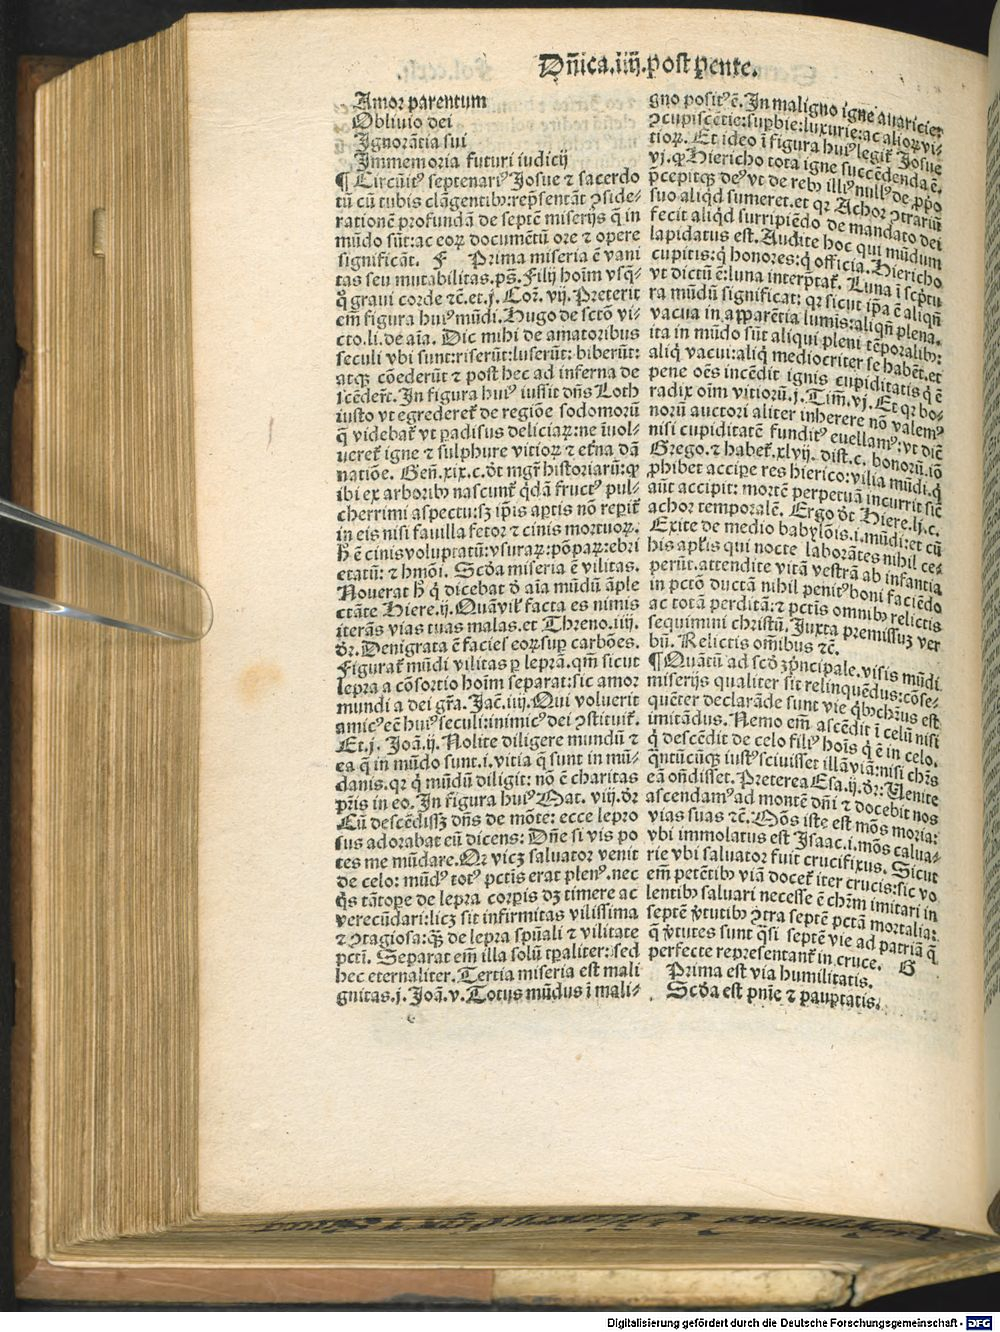 Dñica.iiij.post pente.
Amor parentum
Obliuio dei
Ignorãtia sui
Immemoria futuri iudicij
¶ Circũitꝰ septenariꝰ Josue ⁊ sacerdo
tũ cũ tubis clãgentibꝰ: rep̃sentãt ↄside⸗
rationẽ profundã de septẽ miserijs q̃ in
mũdo sũt: ac eoꝝ documẽtũ ore ⁊ opere
significãt. F Prima miseria ẽ vani
tas seu mutabilitas. ps̃. Filij hoĩm vsq̃⸗
q̊ graui corde ⁊c̃. et .j. Coꝛ̃. vij. Preterit
em̃ figura huiꝰ mũdi. Hugo de sctõ vi⸗
cto. li. de aĩa. Dic mihi de amatoribus
seculi vbi sunt: riserũt: luserũt: biberũt:
atqꝫ cõederũt ⁊ post hec ad inferna de
scẽderũt. In figura huiꝰ iussit dñs Loth
iusto vt egrederet̃ de regiõe sodomorũ
q̃ videbat̃ vt padisus deliciaꝝ: ne ĩuol⸗
ueret̃ igne ⁊ sulphure vitioꝝ ⁊ et̃na dã
natiõe. Geñ. xix. c. dt̃ mgr̃ historiarũ: ꝙ
ibi ex arboribꝰ nascunt̃ q̃dã fructꝰ pul⸗
cherrimi aspectu: sꝫ ip̃is aptis nõ repit̃
in eis nisi fauilla fetor ⁊ cinis mortuoꝝ.
h̃ ẽ cinis voluptatũ: vsuraꝝ: põpaꝝ: ebri
etatũ: ⁊ hmõi. Scd̃a miseria ẽ vilitas.
Nouerat h̃ q̃ dicebat d̃ aĩa mũdũ ãple
ctãte Hiere. ij. Quã vil̃ facta es nimis
iterãs vias tuas malas. et Threno. iiij.
dr̃. Denigrata ẽ facies eoꝝ sup carbões.
Figurat̃ mũdi vilitas ꝑ leprã. qm̃ sicut
lepra a cõsortio hoĩm separat: sic amor
mundi a dei gr̃a. Jac̃. iiij. Qui voluerit
amicꝰ eẽ huiꝰ seculi: inimicꝰ dei ↄstituit̃.
Et .j. Joã. ij. Nolite diligere mundũ ⁊
ea q̃ in mũdo sunt. i. vitia q̃ sunt in mũ⸗
danis. qr q̃ mũdũ diligit: nõ ẽ charitas
pr̃is in eo. In figura huiꝰ Mat. viij. dr̃
Cũ descẽdissꝫ dñs de mõte: ecce lepro
sus adorabat eũ dicens: Dñe si vis po
tes me mũdare. Qr̃ vicꝫ saluator venit
de celo: mũdꝰ totꝰ pctĩs erat plenꝰ. nec
q̃s tãtope de lepra corpis dꝫ timere ac
verecũdari: licꝫ sit infirmitas vilissima
⁊ ↄtagiosa: q̃ꝫ de lepra spũali ⁊ vilitate
pctĩ. Separat em̃ illa solũ tp̃aliter: sed
hec eternaliter. Tertia miseria est mali
gnitas. j. Joã. v. Totus mũdus ĩ mali⸗
gno positꝰ ẽ. In maligno igne auaricie:
ↄcupiscẽtie: supbie: luxurie: ac alioꝝ vi⸗
tioꝝ. Et ideo ĩ figura huiꝰ legit̃ Josue
vj. ꝙ Hiericho tota igne succẽdenda ẽ.
p̃cepitqꝫ deꝰ vt de rebꝰ illiꝰ nullꝰ de ppo
suo aliq̃d sumeret. et qr Achor ↄtrariũ
fecit aliq̃d surripiẽdo de mandato dei
lapidatus est. Audite hoc qui mũdum
cupitis: q̃ honores: q̃ officia. Hiericho
vt dictũ ẽ: luna interp̃tat̃. Luna ĩ scp̃tu
ra mũdũ significat: qr sicut ip̃a ẽ aliqñ
vacua in apparẽtia lumĩs: aliqñ plena.
ita in mũdo sũt aliqui pleni tẽporalibꝰ:
aliq̃ vacui: aliq̃ mediocriter se habẽt. et
pene oẽs incẽdit ignis cupiditatis q̃ ẽ
radix oĩm vitiorũ. j. Tim̃. vj. Et qr bo⸗
norũ auctori aliter inherere nõ valemꝰ
nisi cupiditatẽ funditꝰ euellamꝰ: vt dic̃
Grego. ⁊ habet̃. xlvij. dist. c. bonorũ. iõ
ꝓhibet accipe res hierico: vilia mũdi. q̃
aũt accipit: mortẽ perpetuã incurrit sic̃
achor temporalẽ. Ergo dt̃ Hiere. lj. c.
Exite de medio babylõis. i. mũdi: et cũ
his apl̃is qui nocte laborãtes nihil ce⸗
perũt. attendite vitã vestrã ab infantia
in pctõ ductã nihil penitꝰ boni faciẽdo
ac totã perditã: ⁊ pctis omnibꝰ relictis
sequimini christũ. Juxta premissuꝫ ver
bũ. Relictis om̃ibus ⁊c̃.
¶ Quãtũ ad scd̃ꝫ p̃ncipale. visis mũdi
miserijs qualiter sit relinquẽdus: cõse⸗
quẽter declarãde sunt vie q̃bꝰ chr̃us est
imitãdus. Nemo em̃ ascẽdit ĩ celũ nisi
q̃ descẽdit de celo filiꝰ hoĩs q̃ ẽ in celo.
q̃ntũcũqꝫ iustꝰ sciuisset illã viã: nisi chr̃s
eã oñdisset. Preterea Esa. ij. dr̃: Uenite
ascendamꝰ ad montẽ dñi ⁊ docebit nos
vias suas ⁊c̃. Mõs iste est mõs moria:
vbi immolatus est Isaac. i. mõs calua⸗
rie vbi saluator fuit crucifixus. Sicut
em̃ petẽtibꝰ viã docet̃ iter crucis: sic vo
lentibꝰ saluari necesse ẽ chr̃m imitari in
septẽ v̓tutibꝰ ↄtra septẽ pctã mortalia:
q̃ v̓tutes sunt q̃si septẽ vie ad patriã q̃
perfecte representant̃ in cruce. G
Prima est via humilitatis.
Scd̃a est pnĩe ⁊ paupratis.
Digitalisierung gefördert durch die Deutsche Forschungsgemeinschaft - DFG